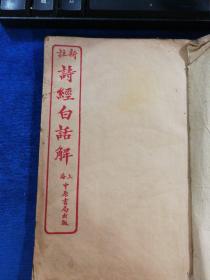 新註
詩經白話解
上海
中原書局出版